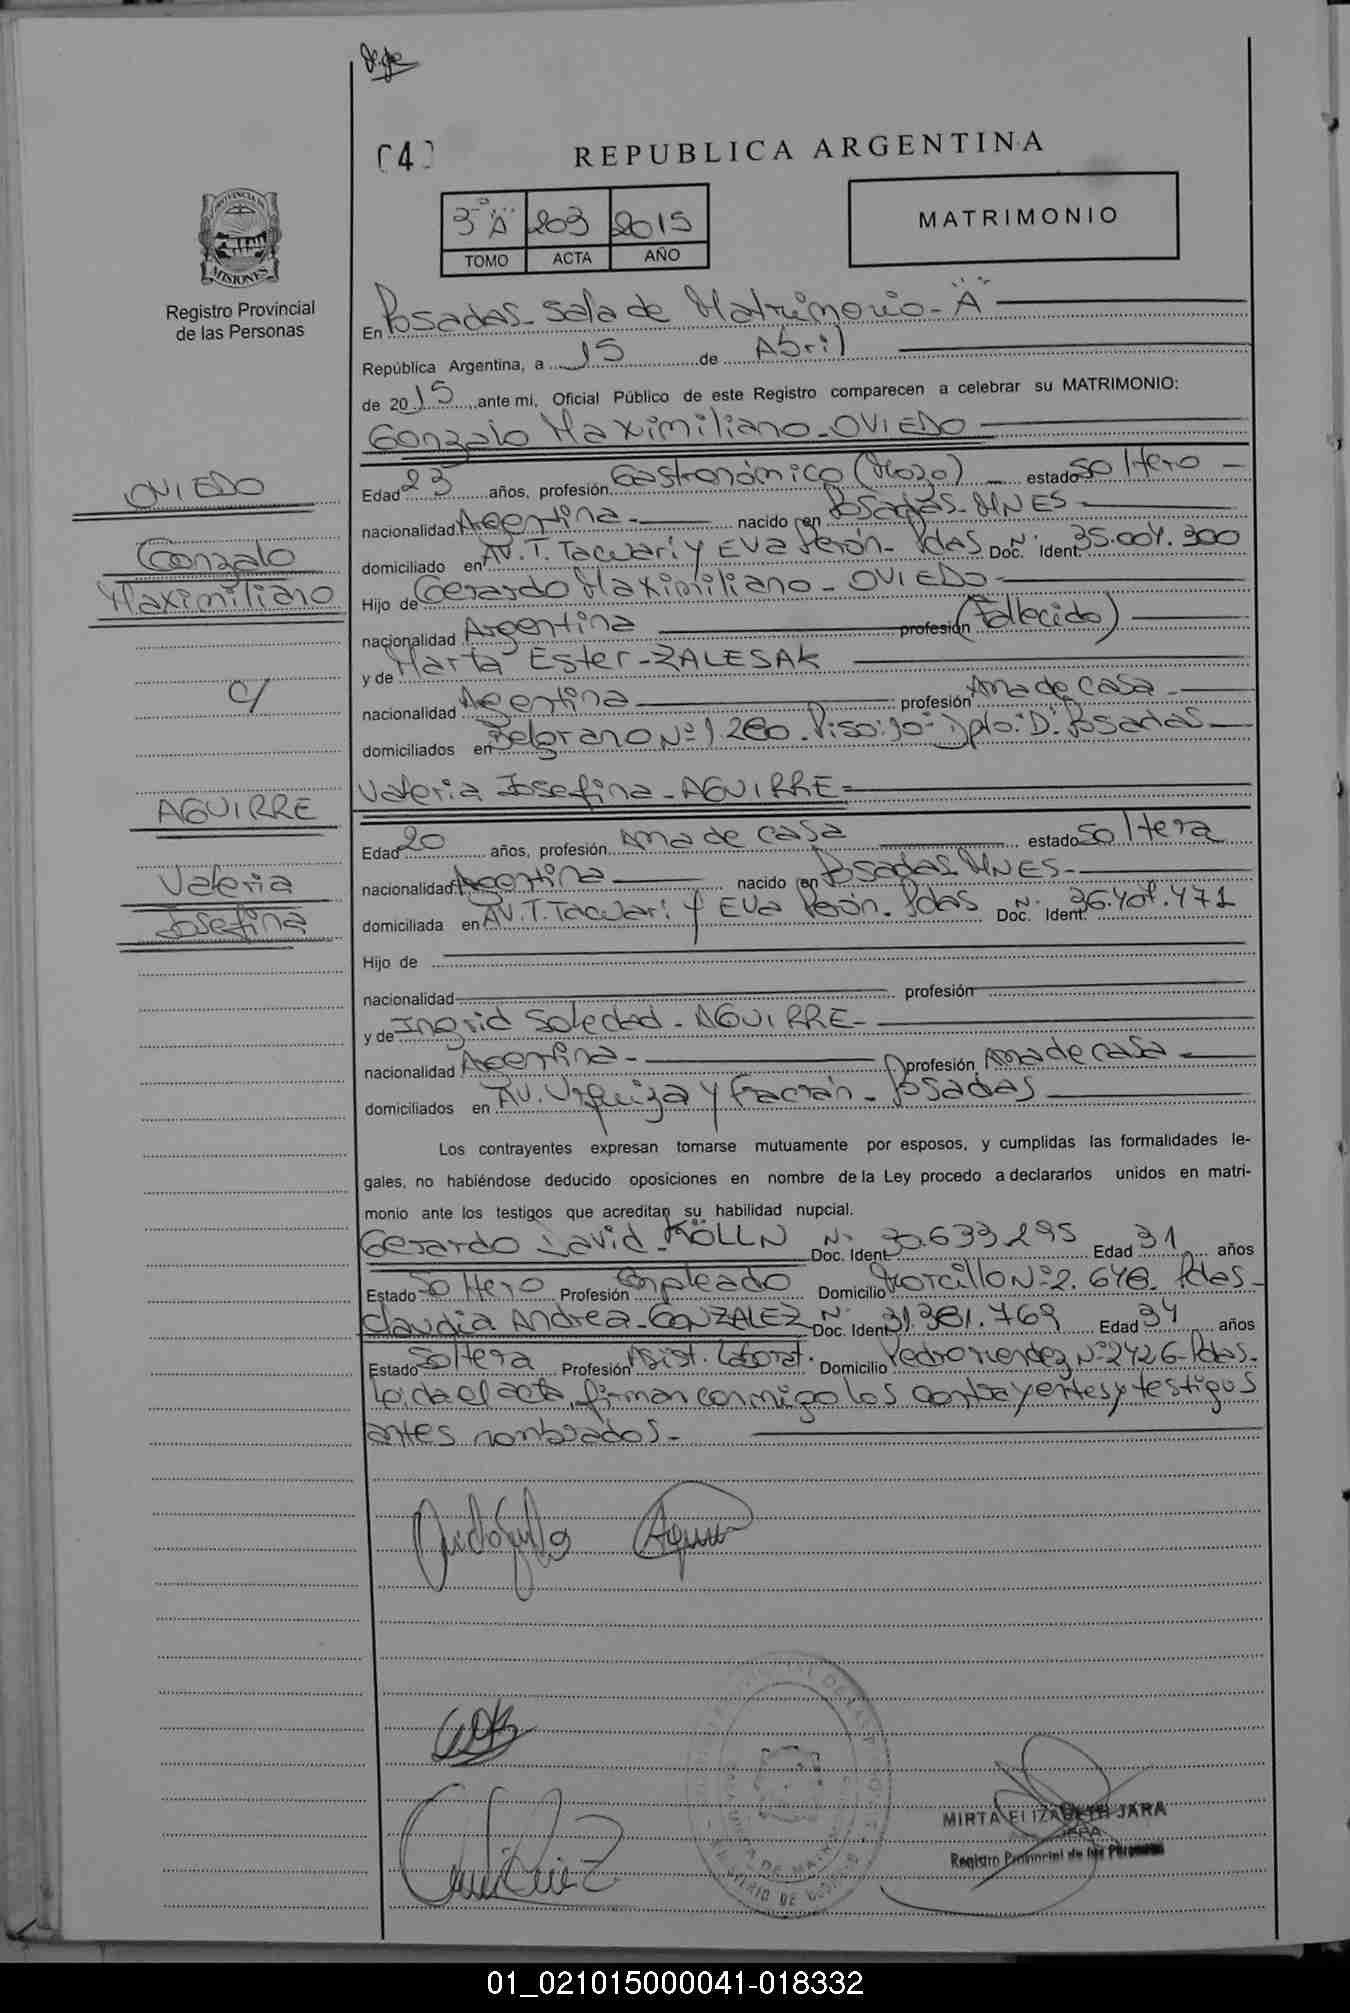 [4]
REPUBLICA ARGENTINA
3º "A" 203 2015
TOMO ACTA AÑO
MATRIMONIO
PROVINCIA DE
MISIONES
Registro Provincial
de las Personas
En Posadas - Sala de Matrimonio - "A"
República Argentina, a 15 de Abril
de 2015, ante mi, Oficial Público de este Registro comparecen a celebrar su MATRIMONIO:
Gonzalo Maximiliano - OVIEDO
OVIEDO
Gonzalo
Maximiliano
c/
AGUIRRE
Valeria
Josefina
Edad 23 años, profesión Gastronómico (Mozo) estado soltero
nacionalidad Argentina - nacido en Posadas - MNES
domiciliado en AV. T. Tacuarí y EVa Perón - Pdas Doc. Nº Ident. 35.004.300
Hijo de Gerardo Maximiliano - OVIEDO
nacionalidad Argentina profesión (Fallecido)
y de Marta Ester - ZALESAK
nacionalidad Argentina profesión Ama de casa
domiciliados en Belgrano Nº 1280 - Piso: 10 - Dpto: D. Posadas
Valeria Josefina - AGUIRRE
Edad 20 años, profesión Ama de casa estado soltera
nacionalidad Argentina nacido en Posadas MNES -
domiciliada en AV. T. Tacuari y EVa Perón - Pdas Doc. Nº Ident. 36.407.471
Hijo de
nacionalidad profesión
y de Ingrid Soledad - AGUIRRE -
nacionalidad Argentina - profesión Ama de casa
domiciliados en AV. Urquiza y Fracrán - Posadas
Los contrayentes expresan tomarse mutuamente por esposos, y cumplidas las formalidades le-
gales, no habiéndose deducido oposiciones en nombre de la Ley procedo a declararlos unidos en matri-
monio ante los testigos que acreditan su habilidad nupcial.
Gerardo David - KÖLLN Nº Doc. Ident. 30.633.295 Edad 31 años
Estado Soltero Profesión Empleado Domicilio Morcillo Nº 2.648 - Pdas -
Claudia Andrea - GONZALEZ Nº Doc. Ident. 31.381.769 Edad 34 años
Estado Soltera Profesión Asist. Laborat. Domicilio Pedro Mendez Nº 2426 - Pdas -
Leída el acta, firman conmigo los contrayentes y testigos
antes nombrados -
MIRTA ELIZABETH JARA
Registro Provincial de las Personas
01_021015000041-018332